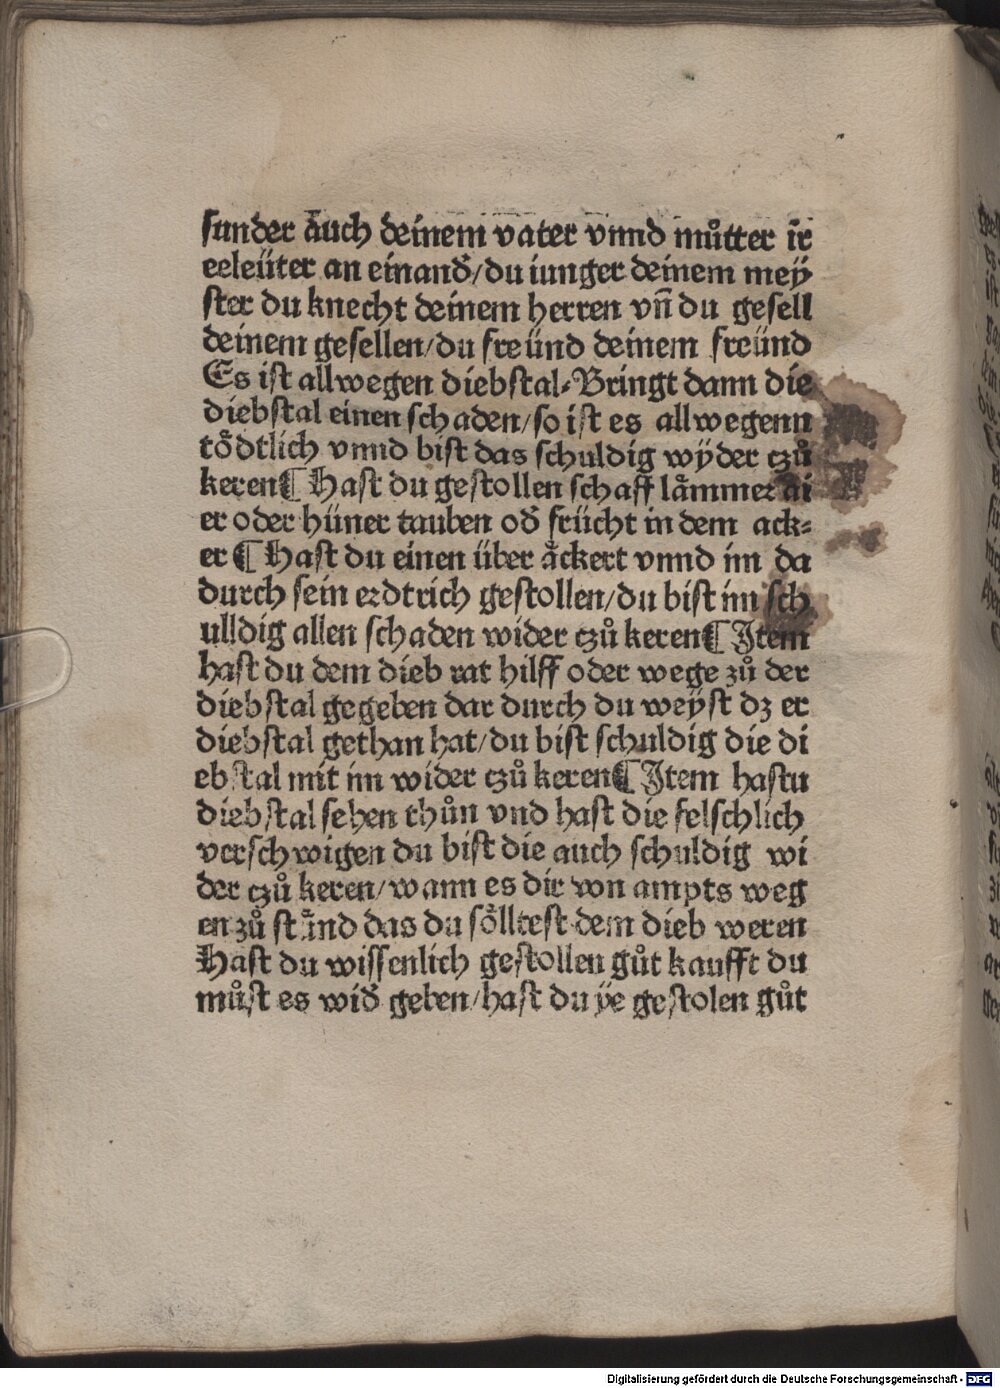 sunder auch deinem vater vnnd můtter ir
eeleüter an einand̕/du iunger deinem mey
ster du knecht deinem herren vn̄ du gesell
deinem gesellen/du freünd deinem freünd
Es ist allwegen diebstal⸗Bringt dann die
diebstal einen schaden/so ist es allwegenn
tȯdtlich vnnd bist das schuldig wÿder czů
keren¶ Hast du gestollen schaff lȧmmer ai
er oder hüner tauben od̕ frücht in dem ack⸗
er ¶ Hast du einen über ȧckert vnnd im da
durch sein erdtrich gestollen/du bist im sch
ulldig allen schaden wider czů keren¶ Item
hast du dem dieb rat hilff oder wege zů der
diebstal gegeben dar durch du weÿst dz er
diebstal gethan hat/du bist schuldig die di
ebstal mit im wider czů keren¶ Item hastu
diebstal sehen thůn vnd hast die felschlich
verschwigen du bist die auch schuldig wi
der czů keren/wann es dir von ampts weg
en zů stȧnd das du sȯlltest dem dieb weren
Hast du wissenlich gestollen gůt kaufft du
můst es wid̕ geben/hast du ÿe gestolen gůt
Digitalisierung gefördert durch die Deutsche Forschungsgemeinschaft - DFG